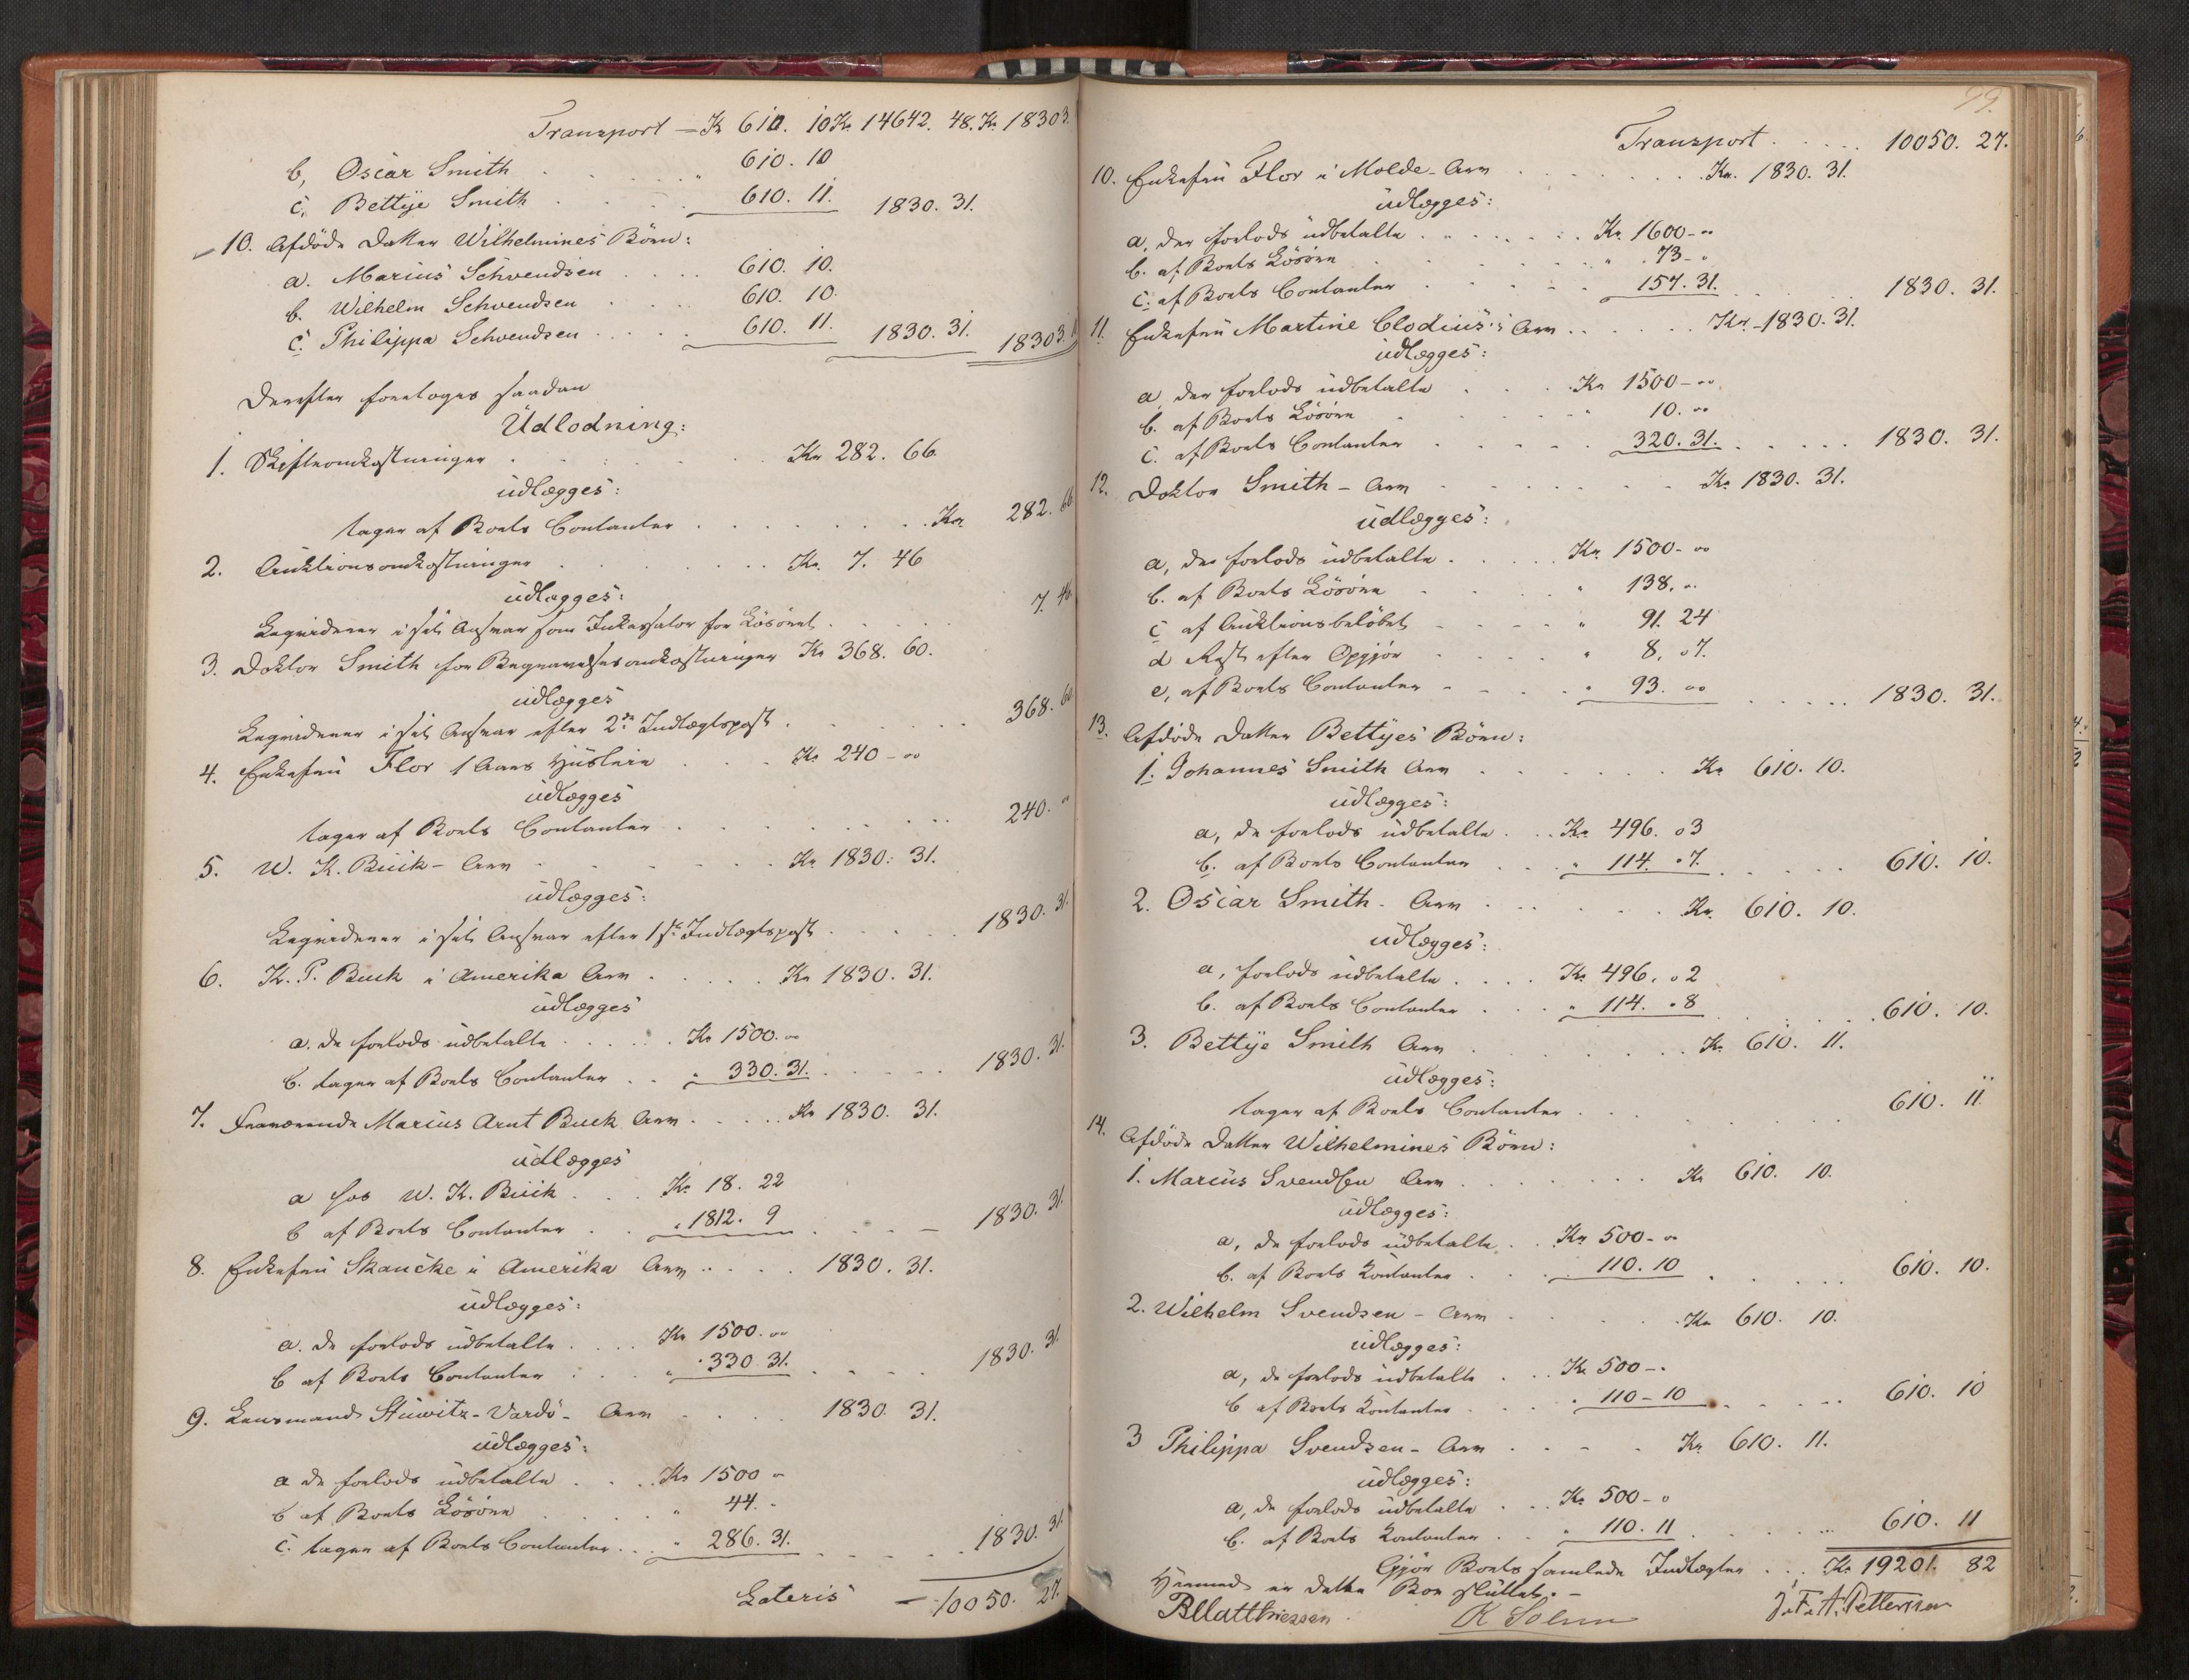 Transport - Kr 610. 10 Kr 14642. 48. Kr 18303.
b, Oscar Smith . . . 610. 10
c, Bettye Smith . . . 610. 11. 1830. 31.
10. Afdøde Datter Wilhelmines Børn:
a. Marius Schvendsen . . . 610. 10.
b. Wilhelm Schvendsen . . . 610. 10.
c. Philippa Schvendsen . . . 610. 11. 1830. 31. 18303.
Derefter foretoges saadan
Udlodning:
1. Skifteomkostninger . . . Kr 282. 66.
udlægges:
tager af Boets Contanter . . . Kr 282. 66
2. Auktionsomkostninger . . . Kr. 7. 46
udlægges:
Liqviderer i sit Ansvar som Inkassator for Løsøret . . . 7. 46
3. Doktor Smith for Begravelsesomkostninger Kr 368. 60.
udlægges
Liqviderer i sit Ansvar efter 2den Indtægtspost . . . 368. 60
4. Enkefru Flor 1 Aars Husleie . . . Kr 240 - "
udlægges
tager af Boets Contanter . . . 240. "
5. W. K. Buck - Arv . . . Kr 1830. 31.
udlægges:
Liqviderer i sit Ansvar efter 1ste Indtægtspost . . . 1830. 31.
6. K. P. Buck i Amerika Arv . . . Kr 1830. 31.
udlægges
a. de forlods udbetalte . . . Kr 1500. "
b. tager af Boets Contanter . . . " 330. 31. . . . 1830. 31.
7. Fraværende Marius Arnt Buck Arv . . . Kr 1830. 31.
udlægges
a hos W. K. Buck . . . Kr 18. 22
b af Boets Contanter . . . " 1812. 9 . . . 1830. 31.
8. Enkefru Skancke i Amerika Arv . . . 1830. 31.
udlægges:
a. de forlods udbetalte . . . Kr 1500. "
b af Boets Contanter . . . " 330. 31. . . . 1830. 31.
9. Lensmand Stuwitz - Vardö - Arv . . . 1830. 31.
udlægges:
a de forlods udbetalte . . . Kr 1500 "
b af Boets Løsøre . . . " 44. "
c. tager af Boets Contanter . . . " 286. 31. . . . 1830. 31.
Lateris - 10050. 27.
99.
Transport . . . 10050. 27.
10. Enkefru Flor i Molde - Arv . . . Kr. 1830. 31.
udlægges:
a, der forlods udbetalte . . . Kr. 1600 - "
b. af Boets Løsøre . . . " 73 - "
c. af Boets Contanter . . . 157. 31. . . . 1830. 31.
11. Enkefru Martine Clodius's Arv . . . Kr. 1830. 31.
udlægges:
a der forlods udbetalte . . . Kr 1500 - "
b. af Boets Løsøre . . . " 10. "
c. af Boets Contanter . . . 320. 31. . . . 1830. 31.
12. Doktor Smith - Arv . . . Kr 1830. 31.
udlægges:
a, des forlods udbetalte . . . Kr 1500 - "
b. af Boets Løsøre . . . " 138. "
c af Auktionsbeløbet . . . " 91. 24
d Rest efter Opgjør . . . " 8. 07.
e, af Boets Contanter . . . " 93. " . . . 1830. 31.
13. Afdøde Datter Bettyes Børn:
1. Johannes Smith Arv . . . Kr 610. 10.
udlægges:
a, de forlods udbetalte . . . Kr 496. 03
b. af Boets Contanter . . . " 114. 07. . . . 610. 10.
2. Oscar Smith - Arv . . . Kr. 610. 10.
udlægges:
a, forlods udbetalte . . . Kr 496. 02
b. af Boets Contanter . . . " 114. 08 . . . 610. 10.
3. Bettye Smith Arv . . . Kr. 610. 11.
udlægges:
tager af Boets Contanter . . . 610. 11.
14. Afdøde Datter Wilhelmines Børn:
1. Marius Svendsen Arv . . . Kr 610. 10.
udlægges:
a, de forlods udbetalte . . . Kr 500 - "
b. af Boets Kontanter . . . 110. 10 . . . 610. 10.
2. Wilhelm Svendsen - Arv . . . Kr 610. 10.
udlægges:
a, de forlods udbetalte . . . Kr 500 - "
b af Boets Kontanter . . . " 110 - 10 . . . 610. 10
3 Philippa Svendsen - Arv . . . Kr 610. 11.
udlægges:
a, de forlods udbetalte . . . Kr 500 - "
b. af Boets Kontanter . . . " 110. 11 . . . 610. 11
Gjør Boets samlede Indtægter . . . Kr 19201. 82
Hermed er dette Bo sluttet. -
B Matthiessen. K Solem J. F. A. Pettersen